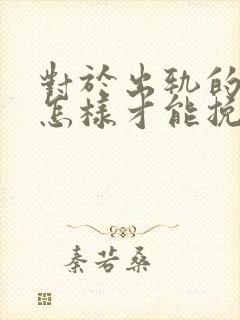 對於出軌的
怎樣才能挽
秦若桑